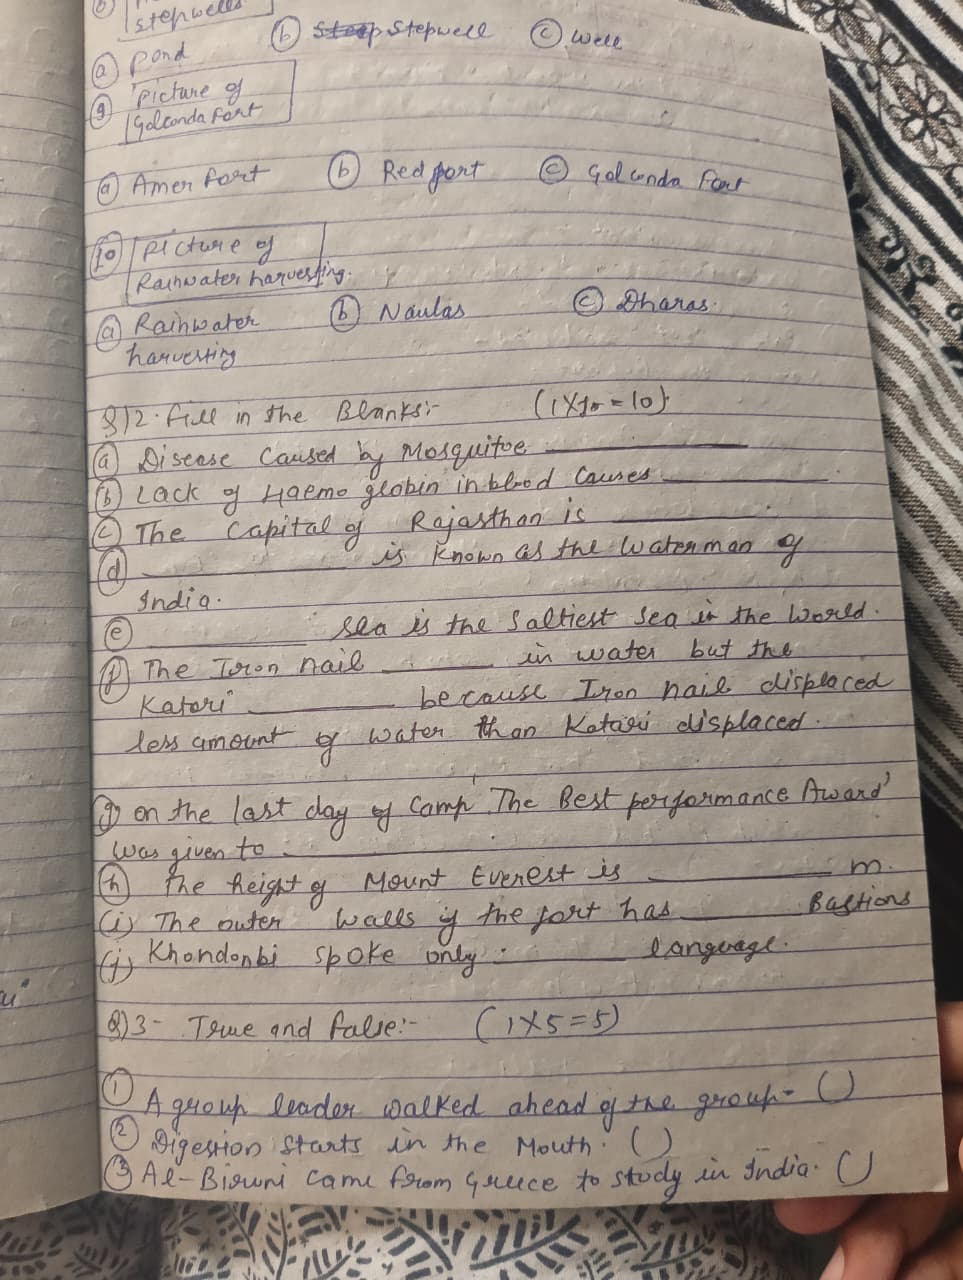 stepwells
ⓐ Pond ⓑ Stepwell ⓒ Well
⑨ Picture of
Golconda Fort
ⓐ Amer Fort ⓑ Red fort ⓒ Golconda Fort
⑩ Picture of
Rainwater harvesting.
ⓐ Rainwater ⓑ Naulas ⓒ Dharas.
harvesting
Q)2. Fill in the Blanks:- (1X10=10)
ⓐ Disease Caused by Mosquitoe ________
ⓑ Lack of Haemoglobin in blood Causes ________.
ⓒ The Capital of Rajasthan is ________.
ⓓ ________ is Known as the Waterman of
India.
ⓔ ________ Sea is the Saltiest Sea in the World.
ⓕ The Iron nail ________ in water but the
Katori ________ because Iron nail displaced
less amount of water than Katori displaced.
ⓖ On the last day of Camp 'The Best performance Award'
was given to ________.
ⓗ The height of Mount Everest is ________ m.
(i) The outer walls of the fort has ________ Bastions
(j) Khondonbi spoke only ________ language.
Q)3- True and False:- (1X5=5)
① A group leader walked ahead of the group- ()
② Digestion Starts in the Mouth. ()
③ Al-Biruni Came from Greece to study in India. ()